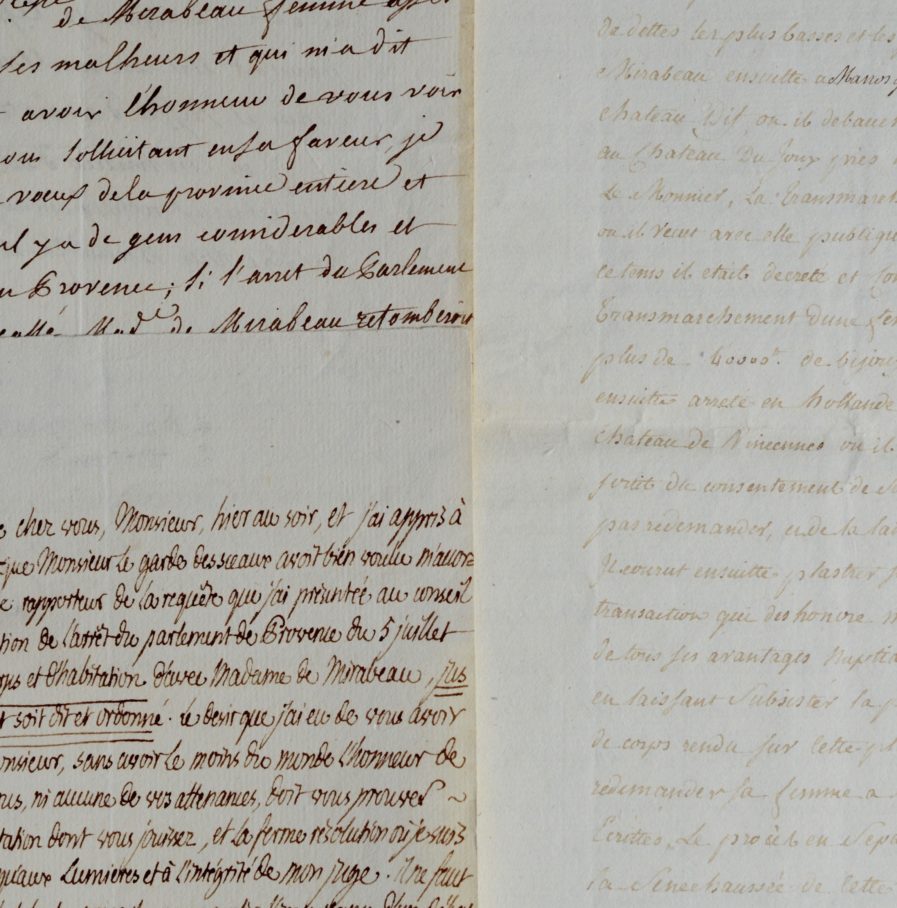 de Mirabeau femme aussi
ses malheurs et qui m'a dit
avoir l'honneur de vous voir
vous sollicitant en sa faveur, je
vœux de la province entiere et
il y a de gens considerables et
en Provence; si l'arret du Parlement
cassé Mad.e de Mirabeau retomberoit
chez vous, Monsieur, hier au soir, et j'ai appris à
que Monsieur le garde des sceaux avoit bien voulu m'accor
rapporteur de la requête que j'ai présentée au conseil
tion de l'arrêt du parlement de Provence du 5 juillet
corps et d'habitation d'avec Madame de Mirabeau, jus
t soit dit et ordonné. Le desir que j'ai eu de vous avoir
onsieur, sans avoir le moins du monde l'honneur de
ni aucune de vos attenances, doit vous prouver ~
tation dont vous jouissez, et la ferme résolution où je suis
qu'aux lumieres et à l'intégrité de mon juge. Il ne faut
de dettes les plus basses et les
Mirabeau ensuitte a Manosq
chateau Dif ou il debauch
au Chateau Du Joux pres
Le Monnier, La transmarch
ou il vecut avec elle publique
ce tems il etait decreté et Con
transmarchement dune fem
plus de 40000tt de bijoux
ensuitte arreté en hollande
chateau de Vincennes ou il
sortit du consentement de
pas redemander, et de la lai
Il courut ensuitte plastrer
transaction qui deshonore
de tous ses avantages nuptia
en laissant Subsister la
de corps rendu sur cette
redemander sa femme a
Ecrittes, Le procès en Sep
la Senechaussée de cette